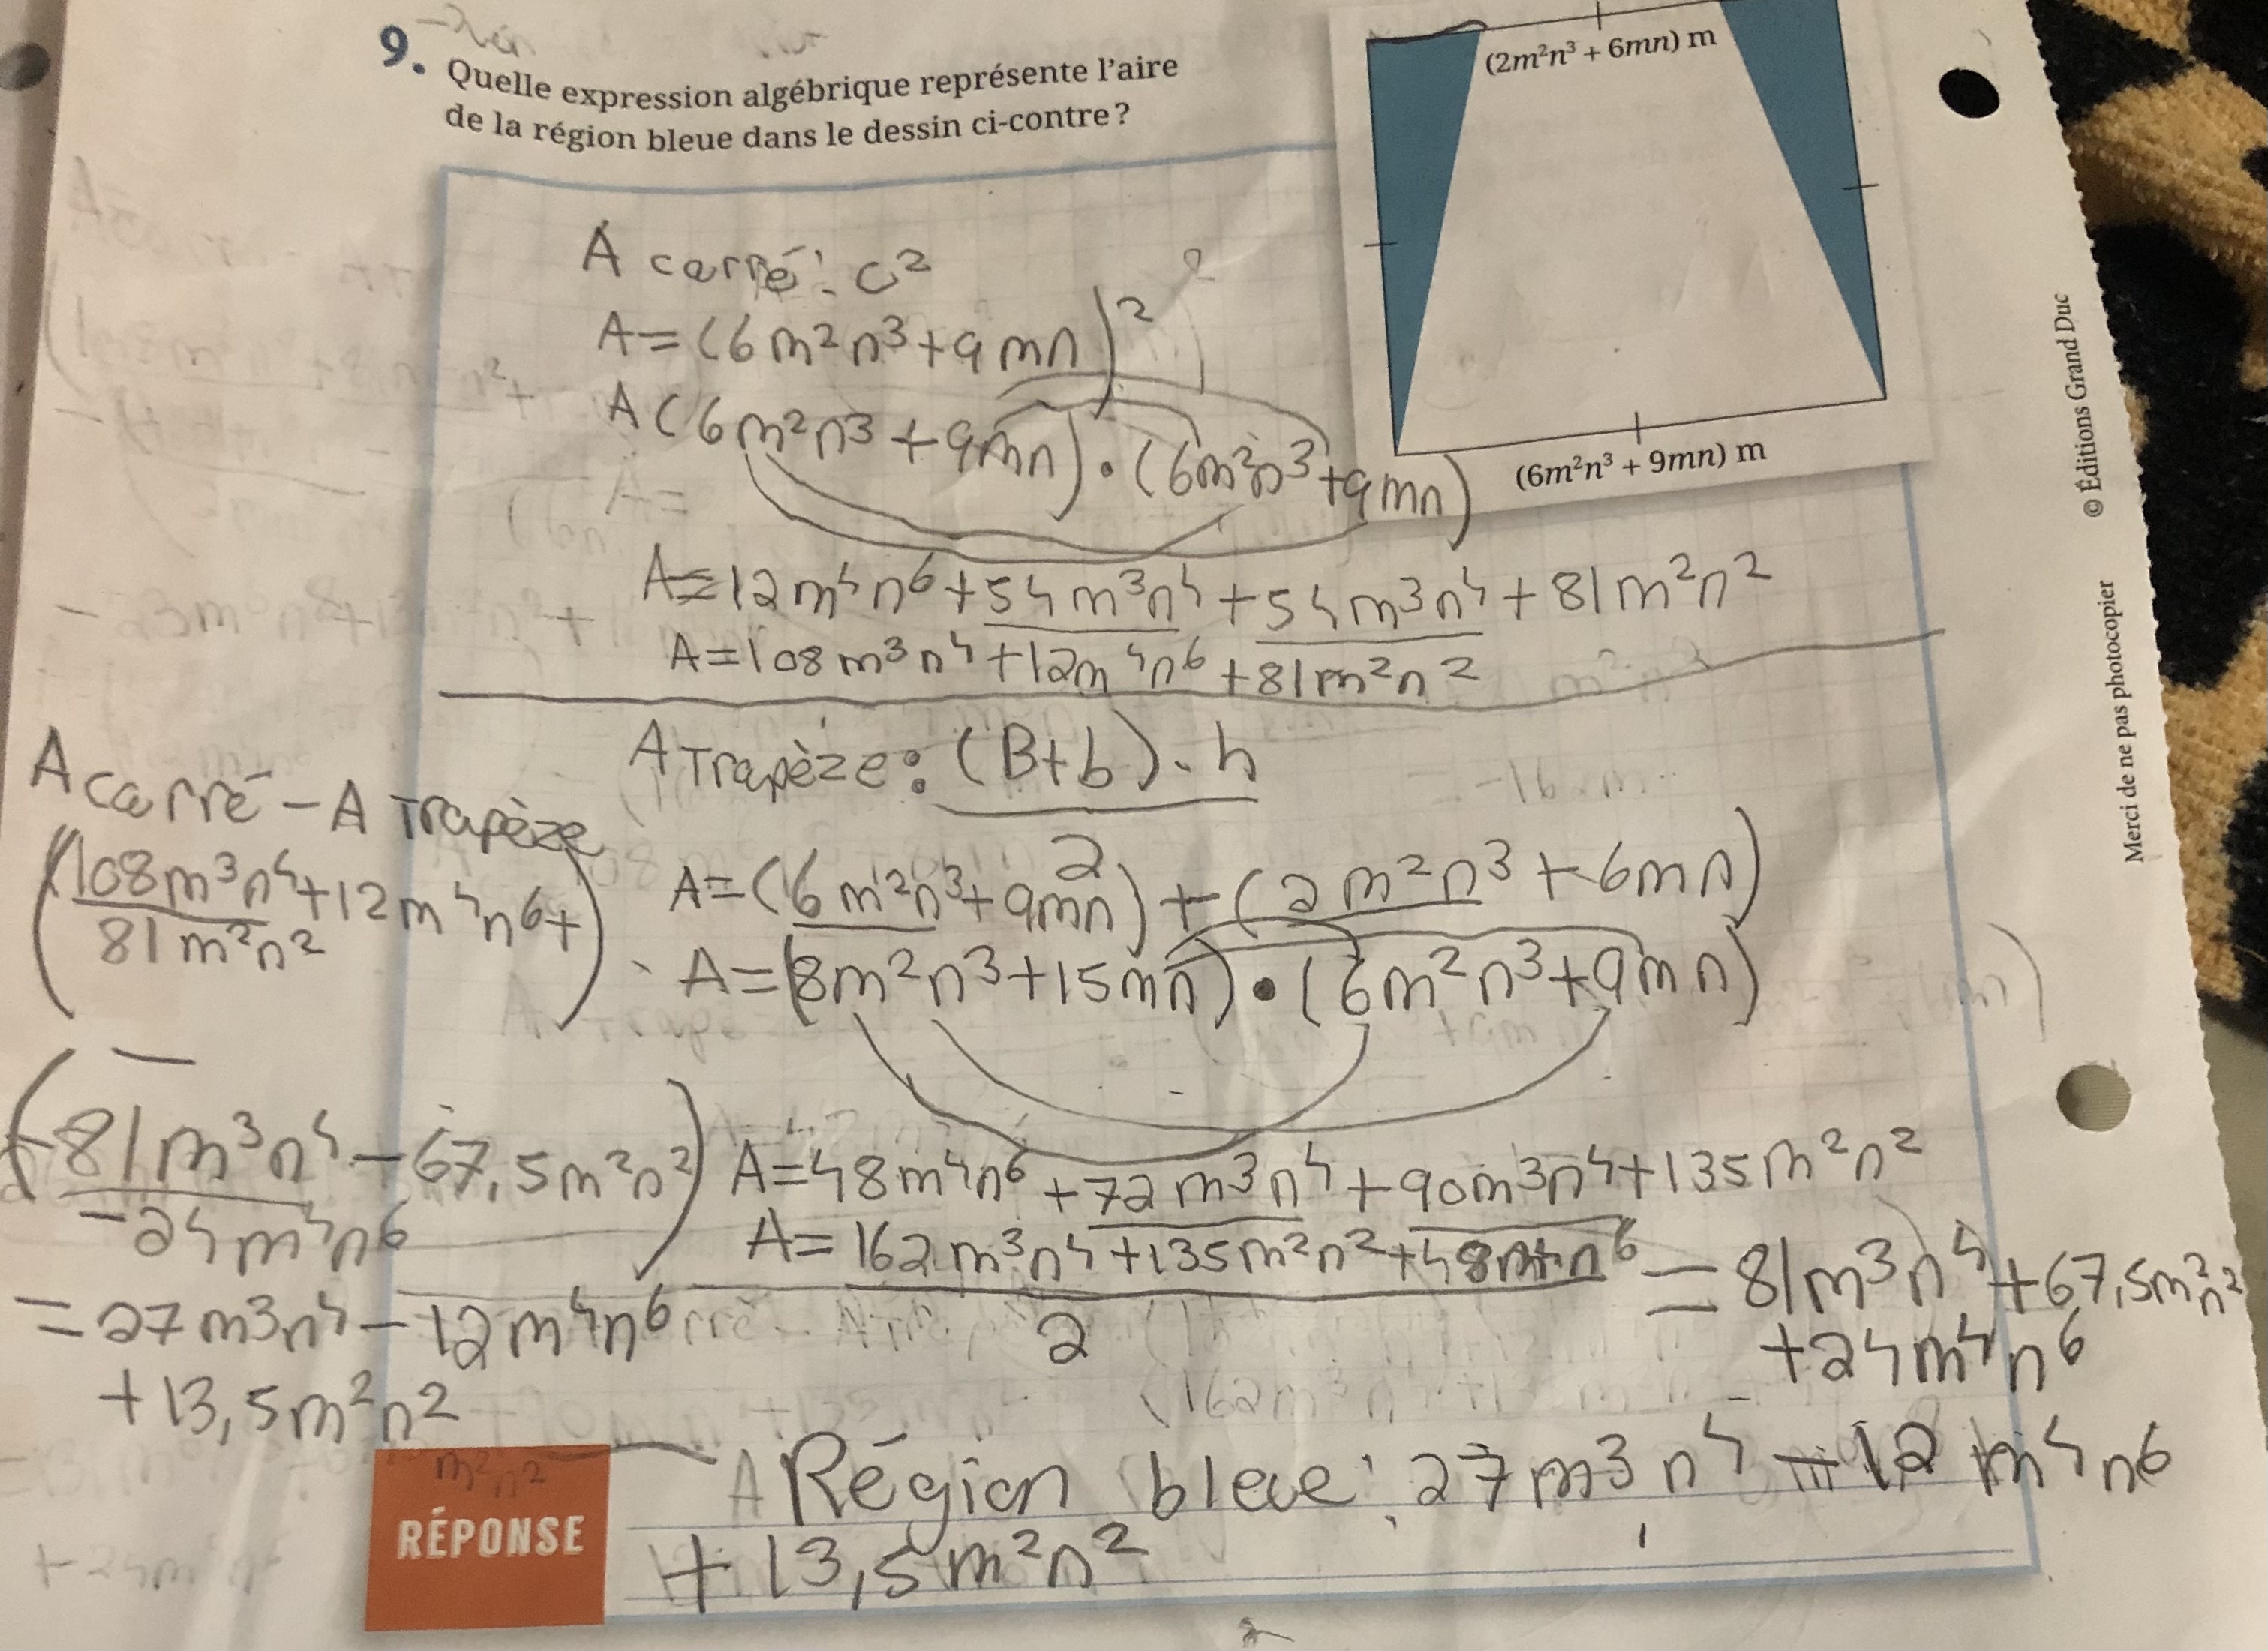 9. Quelle expression algébrique représente l'aire
de la région bleue dans le dessin ci-contre ?
(2m²n³ + 6mn) m
(6m²n³ + 9mn) m
A carré : c²
A = (6m²n³ + 9mn)²
A (6m²n³ + 9mn) • (6m²n³ + 9mn)
A = 12m⁴n⁶ + 54m³n⁴ + 54m³n⁴ + 81m²n²
A = 108m³n⁴ + 12m⁴n⁶ + 81m²n²
A Trapèze : (B+b) · h
2
A = (6m²n³ + 9mn) + (2m²n³ + 6mn)
A = (8m²n³ + 15mn) • (6m²n³ + 9mn)
A = 48m⁴n⁶ + 72m³n⁴ + 90m³n⁴ + 135m²n²
A = 162m³n⁴ + 135m²n² + 48m⁴n⁶ = 81m³n⁴ + 67,5m²n²
2
+ 24m⁴n⁶
A carré – A Trapèze
(108m³n⁴ + 12m⁴n⁶ +
81m²n²)
–
(-81m³n⁴ – 67,5m²n²
– 24m⁴n⁶)
= 27m³n⁴ – 12m⁴n⁶
+ 13,5m²n²
RÉPONSE
A Région bleue : 27m³n⁴ – 12m⁴n⁶
+ 13,5m²n²
Merci de ne pas photocopier © Éditions Grand Duc